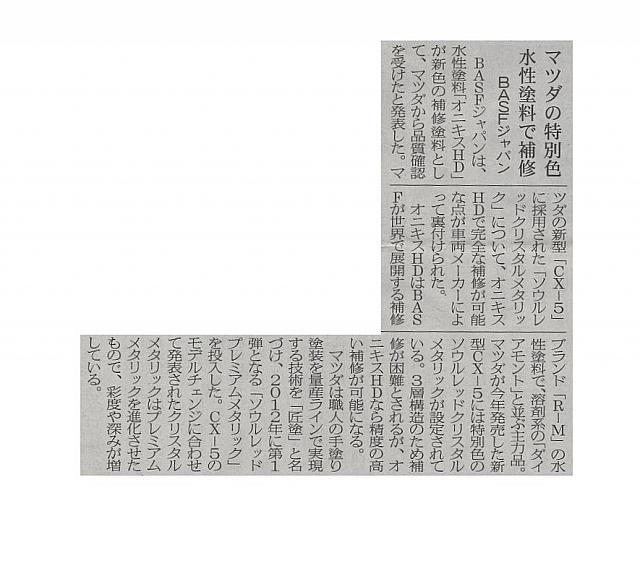 マツダの特別色
水性塗料で補修
BASFジャパン
BASFジャパンは、
水性塗料「オニキスHD」
が新色の補修塗料とし
て、マツダから品質確認
を受けたと発表した。マ
ツダの新型「CX-5」
に採用された「ソウルレ
ッドクリスタルメタリッ
ク」について、オニキス
HDで完全な補修が可能
な点が車両メーカーによ
って裏付けられた。
オニキスHDはBAS
Fが世界で展開する補修
ブランド「R-M」の水
性塗料で、溶剤系の「ダイ
アモント」と並ぶ主力品。
マツダが今年発売した新
型CX-5には特別色の
ソウルレッドクリスタル
メタリックが設定されて
いる。3層構造のため補
修が困難とされるが、オ
ニキスHDなら精度の高
い補修が可能になる。
マツダは職人の手塗り
塗装を量産ラインで実現
する技術を「匠塗」と名
づけ、2012年に第1
弾となる「ソウルレッド
プレミアムメタリック」
を投入した。CX-5の
モデルチェンジに合わせ
て発表されたクリスタル
メタリックはプレミアム
メタリックを進化させた
もので、彩度や深みが増
している。